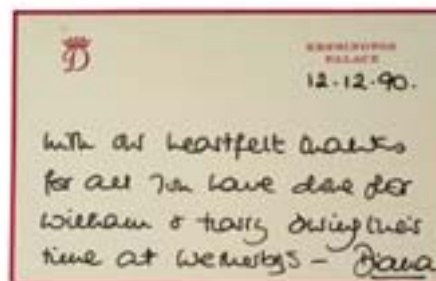 D
KENSINGTON
PALACE
12.12.90.
With our heartfelt thanks
for all you have done for
William & Harry during their
time at Wetherbys - Diana